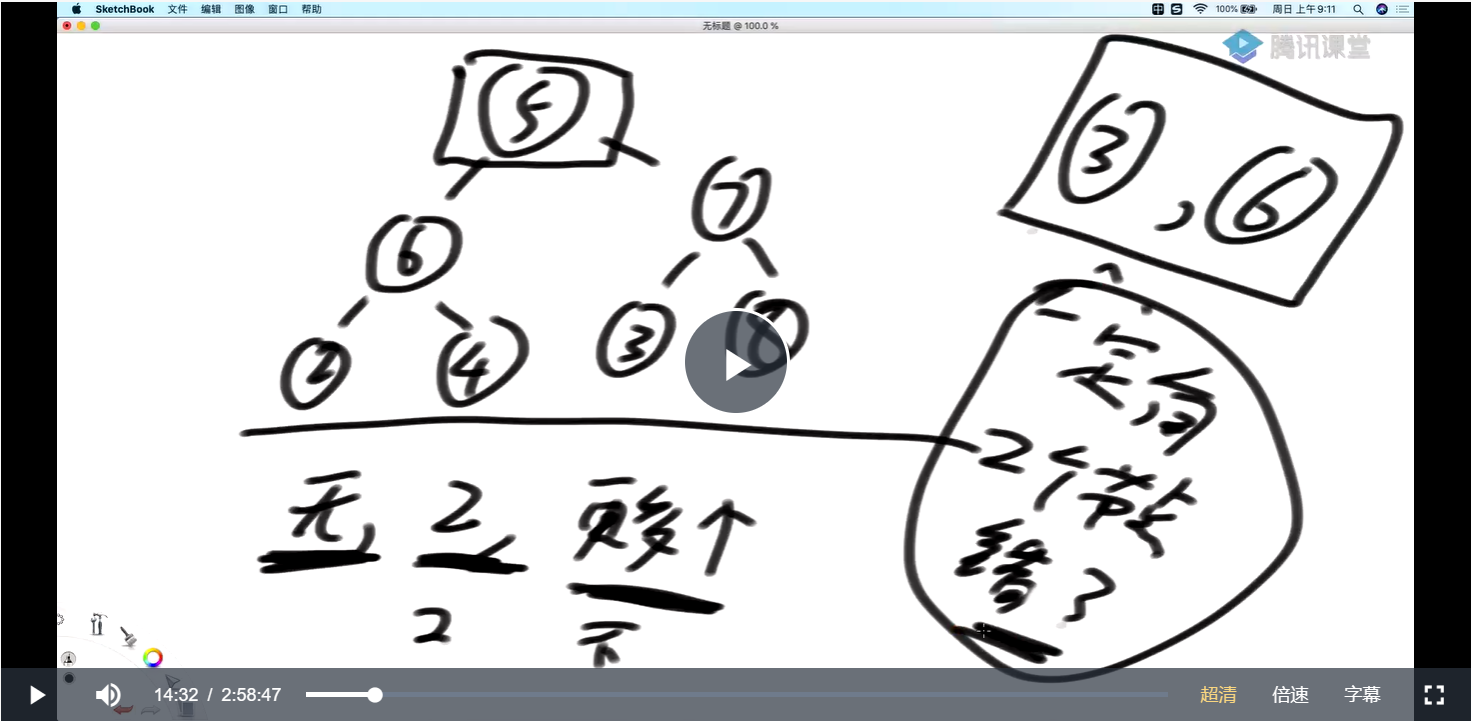 SketchBook 文件 编辑 图像 窗口 帮助 100% 周日 上午9:11
无标题 @ 100.0 %
腾讯课堂
5
3 , 6
7
6
3 8
2 4
一定有
2个节点
错了
无, 2, 更多个
2
不
14:32 / 2:58:47 超清 倍速 字幕